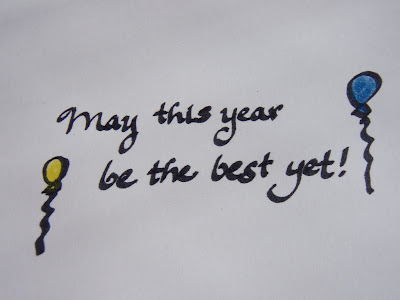 May this year
be the best yet!